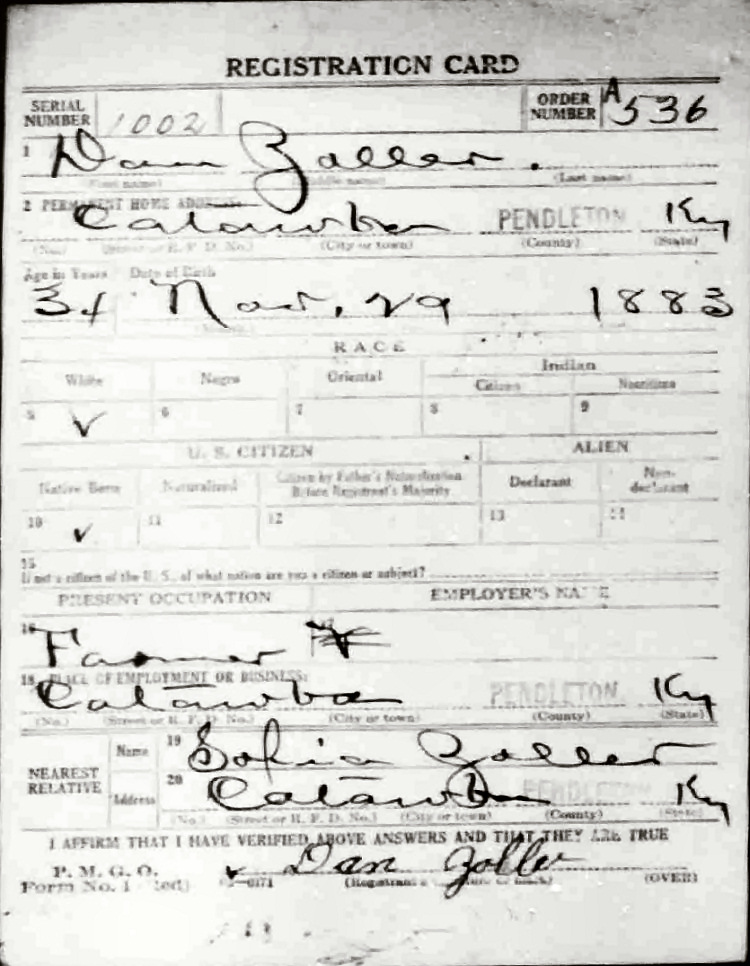 REGISTRATION CARD
SERIAL NUMBER 1002 ORDER NUMBER A 536
1 Dan Zoller.
(First name) (Middle name) (Last name)
2 PERMANENT HOME ADDRESS
Catawba PENDLETON Ky
(No.) (Street or R. F. D. No.) (City or town) (County) (State)
Age in Years Date of Birth
34 Nov. 29 1883
RACE
White Negro Oriental Indian
Citizen Noncitizen
5 ✓ 6 7 8 9
U. S. CITIZEN ALIEN
Native Born Naturalized Citizen by Father's Naturalization Before Registrant's Majority Declarant Non-declarant
10 ✓ 11 12 13 14
15
If not a citizen of the U. S., of what nation are you a citizen or subject?
PRESENT OCCUPATION EMPLOYER'S NAME
16 Farmer
18 PLACE OF EMPLOYMENT OR BUSINESS:
Catawba PENDLETON Ky
(No.) (Street or R. F. D. No.) (City or town) (County) (State)
NEAREST RELATIVE Name 19 Sofia Zoller
Address 20 Catawba PENDLETON Ky
(No.) (Street or R. F. D. No.) (City or town) (County) (State)
I AFFIRM THAT I HAVE VERIFIED ABOVE ANSWERS AND THAT THEY ARE TRUE
P. M. G. O.
Form No. 1 (Red) ✓ Dan Zoller
(OVER)